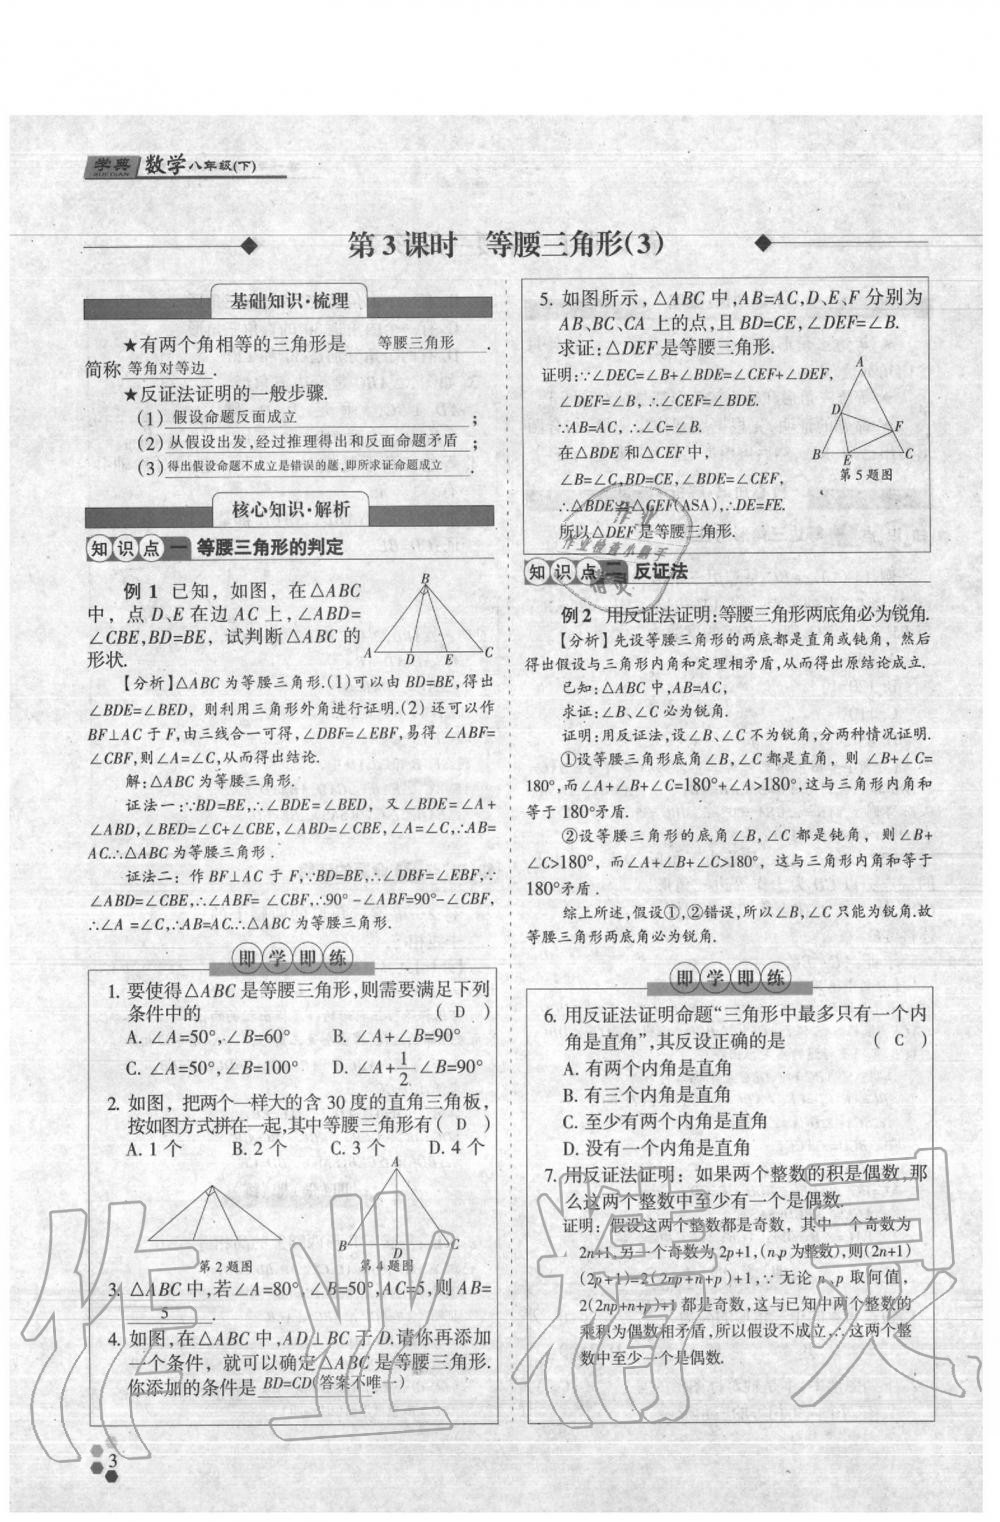 学典 数学八年级(下)
XUE DIAN
第3课时 等腰三角形(3)
基础知识·梳理
★有两个角相等的三角形是 等腰三角形 .
简称 等角对等边 .
★反证法证明的一般步骤.
(1) 假设命题反面成立 ;
(2) 从假设出发,经过推理得出和反面命题矛盾 ;
(3) 得出假设命题不成立是错误的题,即所求证命题成立 .
核心知识·解析
知识点一 等腰三角形的判定
例1 已知，如图，在△ABC
中，点D、E在边AC上，∠ABD=
∠CBE,BD=BE，试判断△ABC的
形状.
B
A D E C
【分析】△ABC为等腰三角形.(1)可以由BD=BE,得出
∠BDE=∠BED，则利用三角形外角进行证明.(2)还可以作
BF⊥AC于F,由三线合一可得，∠DBF=∠EBF,易得∠ABF=
∠CBF,则∠A=∠C,从而得出结论.
解:△ABC为等腰三角形.
证法一:∵BD=BE,∴∠BDE=∠BED，又∠BDE=∠A+
∠ABD,∠BED=∠C+∠CBE,∠ABD=∠CBE,∠A=∠C,∴AB=
AC.∴△ABC为等腰三角形.
证法二：作BF⊥AC于F,∵BD=BE,∴∠DBF=∠EBF,∵
∠ABD=∠CBE,∴∠ABF=∠CBF,∴90°-∠ABF=90°-∠CBF,
∴∠A=∠C,∴AB=AC.∴△ABC为等腰三角形.
即学即练
1. 要使得△ABC是等腰三角形,则需要满足下列
条件中的 ( D )
A. ∠A=50°,∠B=60° B. ∠A+∠B=90°
C. ∠A=50°,∠B=100° D. ∠A+1/2∠B=90°
2. 如图，把两个一样大的含30度的直角三角板,
按如图方式拼在一起,其中等腰三角形有( D )
A. 1个 B. 2个 C. 3个 D. 4个
第2题图
A
B D C
第4题图
3. △ABC中,若∠A=80°,∠B=50°,AC=5,则AB=
5 .
4. 如图,在△ABC中,AD⊥BC于D.请你再添加
一个条件，就可以确定△ABC是等腰三角形.
你添加的条件是 BD=CD(答案不唯一) .
3
5. 如图所示,△ABC中,AB=AC,D、E、F分别为
AB、BC、CA上的点,且BD=CE,∠DEF=∠B.
求证:△DEF是等腰三角形.
证明:∵∠DEC=∠B+∠BDE=∠CEF+∠DEF,
∠DEF=∠B,∴∠CEF=∠BDE.
∵AB=AC,∴∠C=∠B.
在△BDE和△CEF中,
∠B=∠C,BD=CE,∠BDE=∠CEF,
∴△BDE≌△CEF(ASA),∴DE=FE.
所以△DEF是等腰三角形.
A
D
F
B E C
第5题图
知识点二 反证法
例2 用反证法证明:等腰三角形两底角必为锐角.
【分析】先设等腰三角形的两底都是直角或钝角，然后
得出假设与三角形内角和定理相矛盾,从而得出原结论成立.
已知:△ABC中,AB=AC,
求证:∠B、∠C必为锐角.
证明:用反证法,设∠B、∠C不为锐角,分两种情况证明.
①设等腰三角形底角∠B,∠C都是直角，则∠B+∠C=
180°,而∠A+∠B+∠C=180°+∠A>180°,这与三角形内角和
等于180°矛盾.
②设等腰三角形的底角∠B,∠C都是钝角，则∠B+
∠C>180°，而∠A+∠B+∠C>180°，这与三角形内角和等于
180°矛盾.
综上所述,假设①,②错误,所以∠B,∠C只能为锐角.故
等腰三角形两底角必为锐角.
即学即练
6. 用反证法证明命题“三角形中最多只有一个内
角是直角”,其反设正确的是 ( C )
A. 有两个内角是直角
B. 有三个内角是直角
C. 至少有两个内角是直角
D. 没有一个内角是直角
7. 用反证法证明：如果两个整数的积是偶数,那
么这两个整数中至少有一个是偶数.
证明：假设这两个整数都是奇数，其中一个奇数为
2n+1,另一个奇数为2p+1,(n、p为整数),则(2n+1)
(2p+1)=2(2np+n+p)+1,∵无论n、p取何值,
2(2np+n+p)+1都是奇数,这与已知中两个整数的
乘积为偶数相矛盾,所以假设不成立,∴这两个整
数中至少一个是偶数.
作业精灵
作业
作业检查小助手
精灵